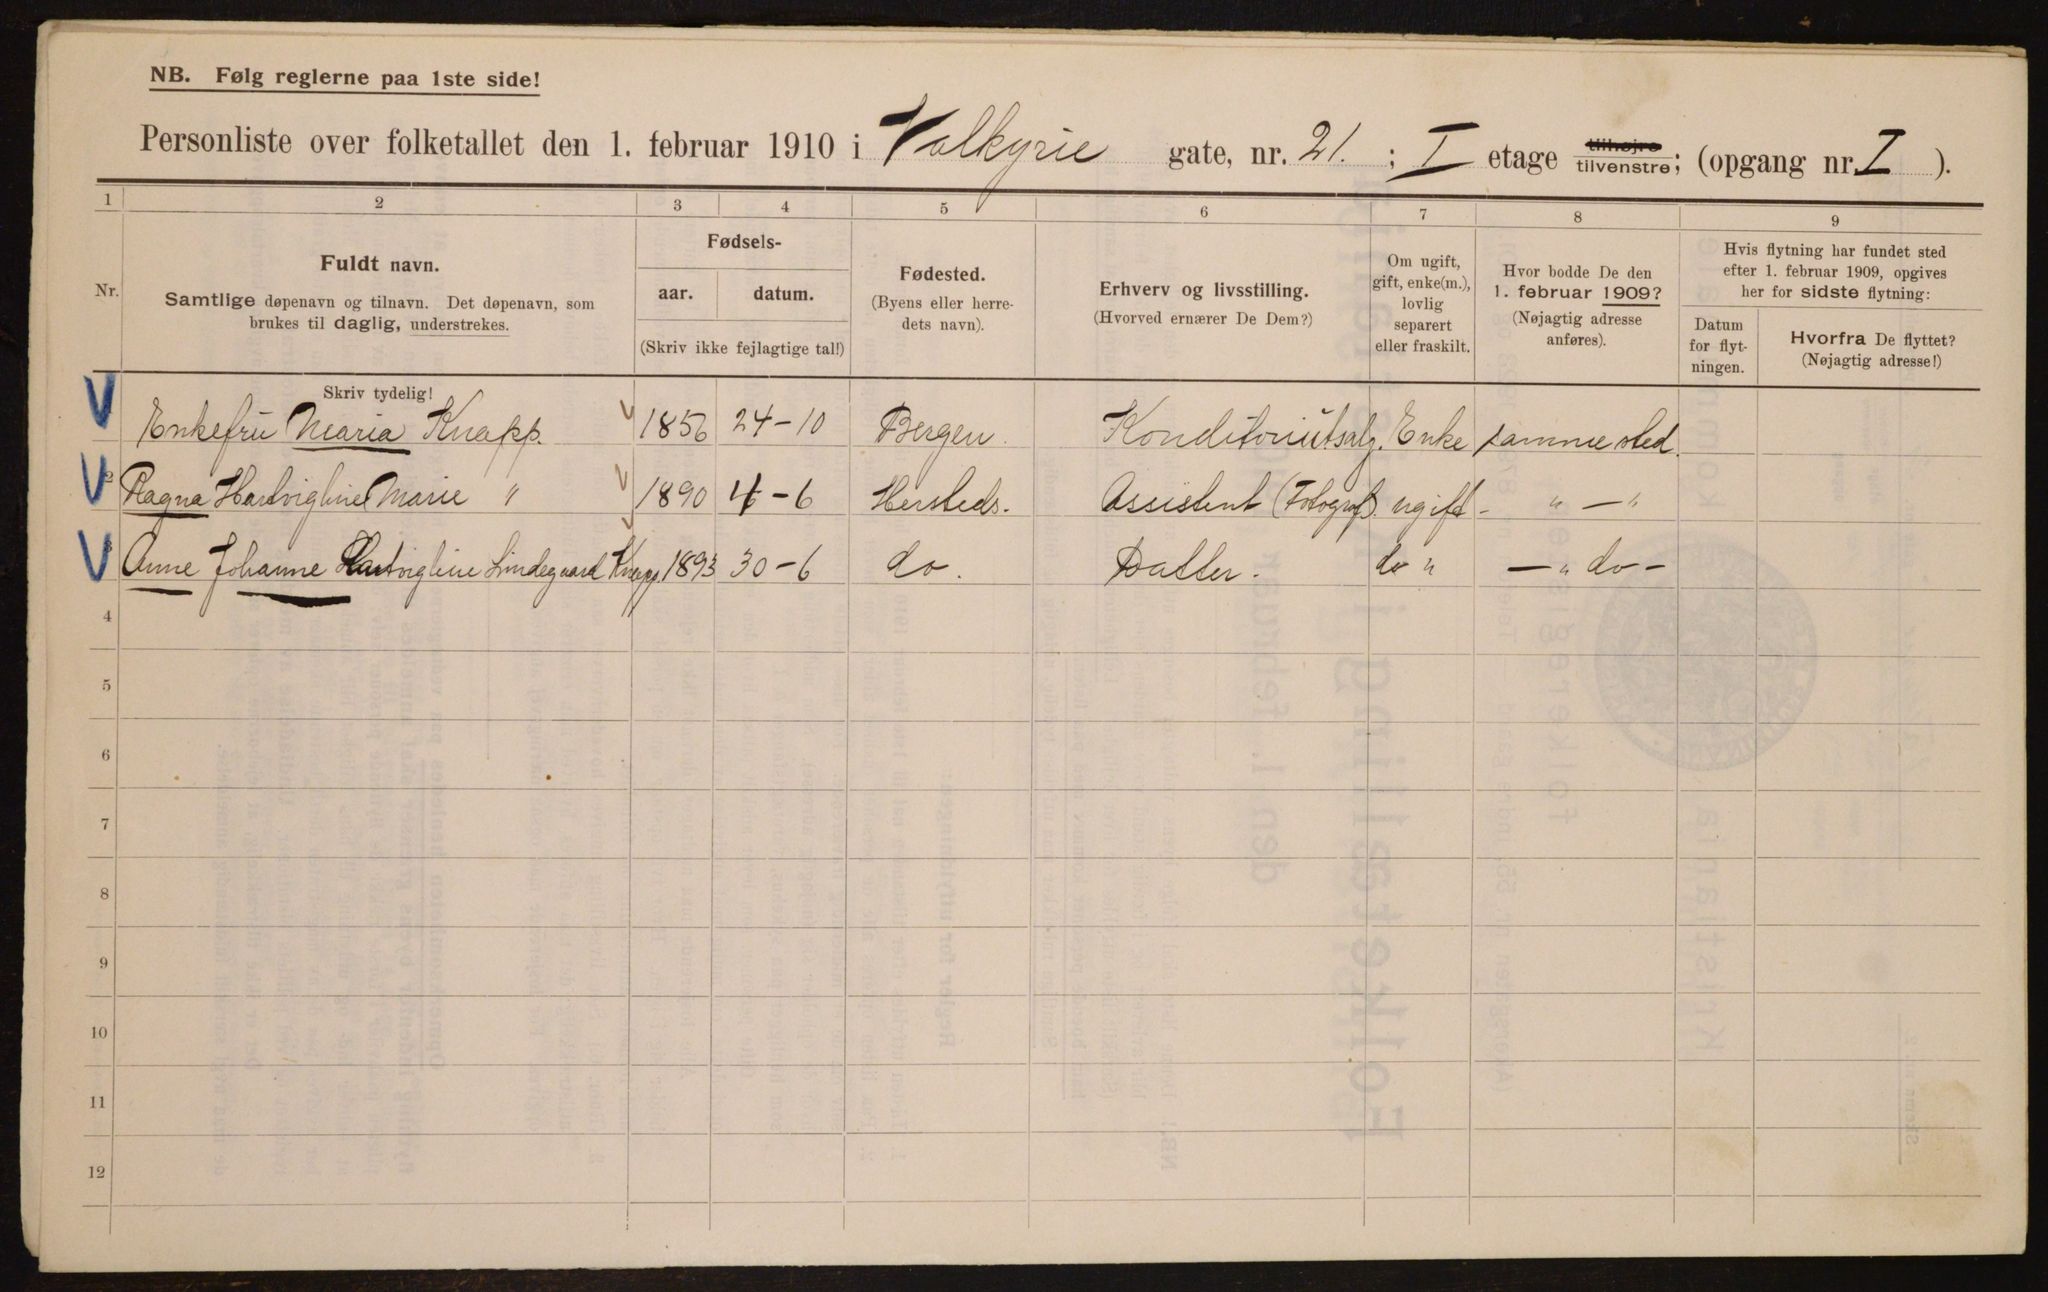 NB. Følg reglerne paa 1ste side!
Personliste over folketallet den 1. februar 1910 i Valkyrie gate, nr. 21. ; I etage tilhøjre tilvenstre; (opgang nr. I ).
1 2 3 4 5 6 7 8 9
Nr.
Fuldt navn.
Samtlige døpenavn og tilnavn. Det døpenavn, som
brukes til daglig, understrekes.
Fødsels-
aar. datum.
(Skriv ikke fejlagtige tal!)
Fødested.
(Byens eller herre-
dets navn).
Erhverv og livsstilling.
(Hvorved ernærer De Dem?)
Om ugift,
gift, enke(m.),
lovlig
separert
eller fraskilt.
Hvor bodde De den
1. februar 1909?
(Nøjagtig adresse
anføres).
Hvis flytning har fundet sted
efter 1. februar 1909, opgives
her for sidste flytning:
Datum
for flyt-
ningen.
Hvorfra De flyttet?
(Nøjagtig adresse!)
Skriv tydelig!
V Enkefru Maria Knapp. 1856 24-10 Bergen. Konditoriutsalg. Enke samme sted.
V 2 Ragna Hartvigline Marie " 1890 4-6 Hersteds. Assistent (Fotograf). ugift - " — "
V 3 Anne Johanne Hartvigline Lindegaard Knapp 1893 30-6 do. Datter. do " — " do —
4
5
6
7
8
9
10
11
12